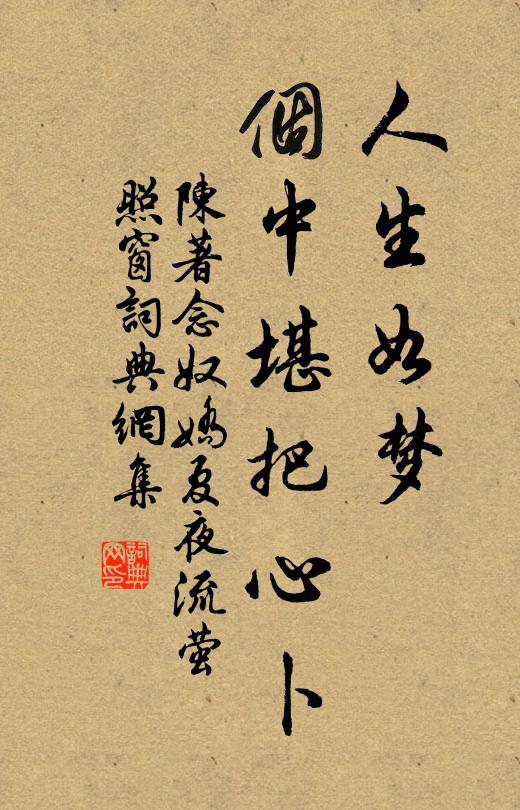 人生如梦
個中堪把心卜
陳著念奴嬌夏夜流萤
照窗詞典網集
詞典网印